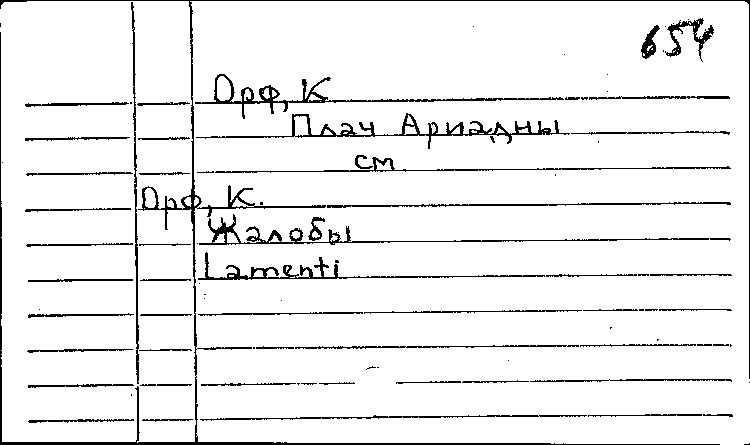 654
Орф, К
Плач Ариадны
см
Орф, К.
Жалобы
Lamenti